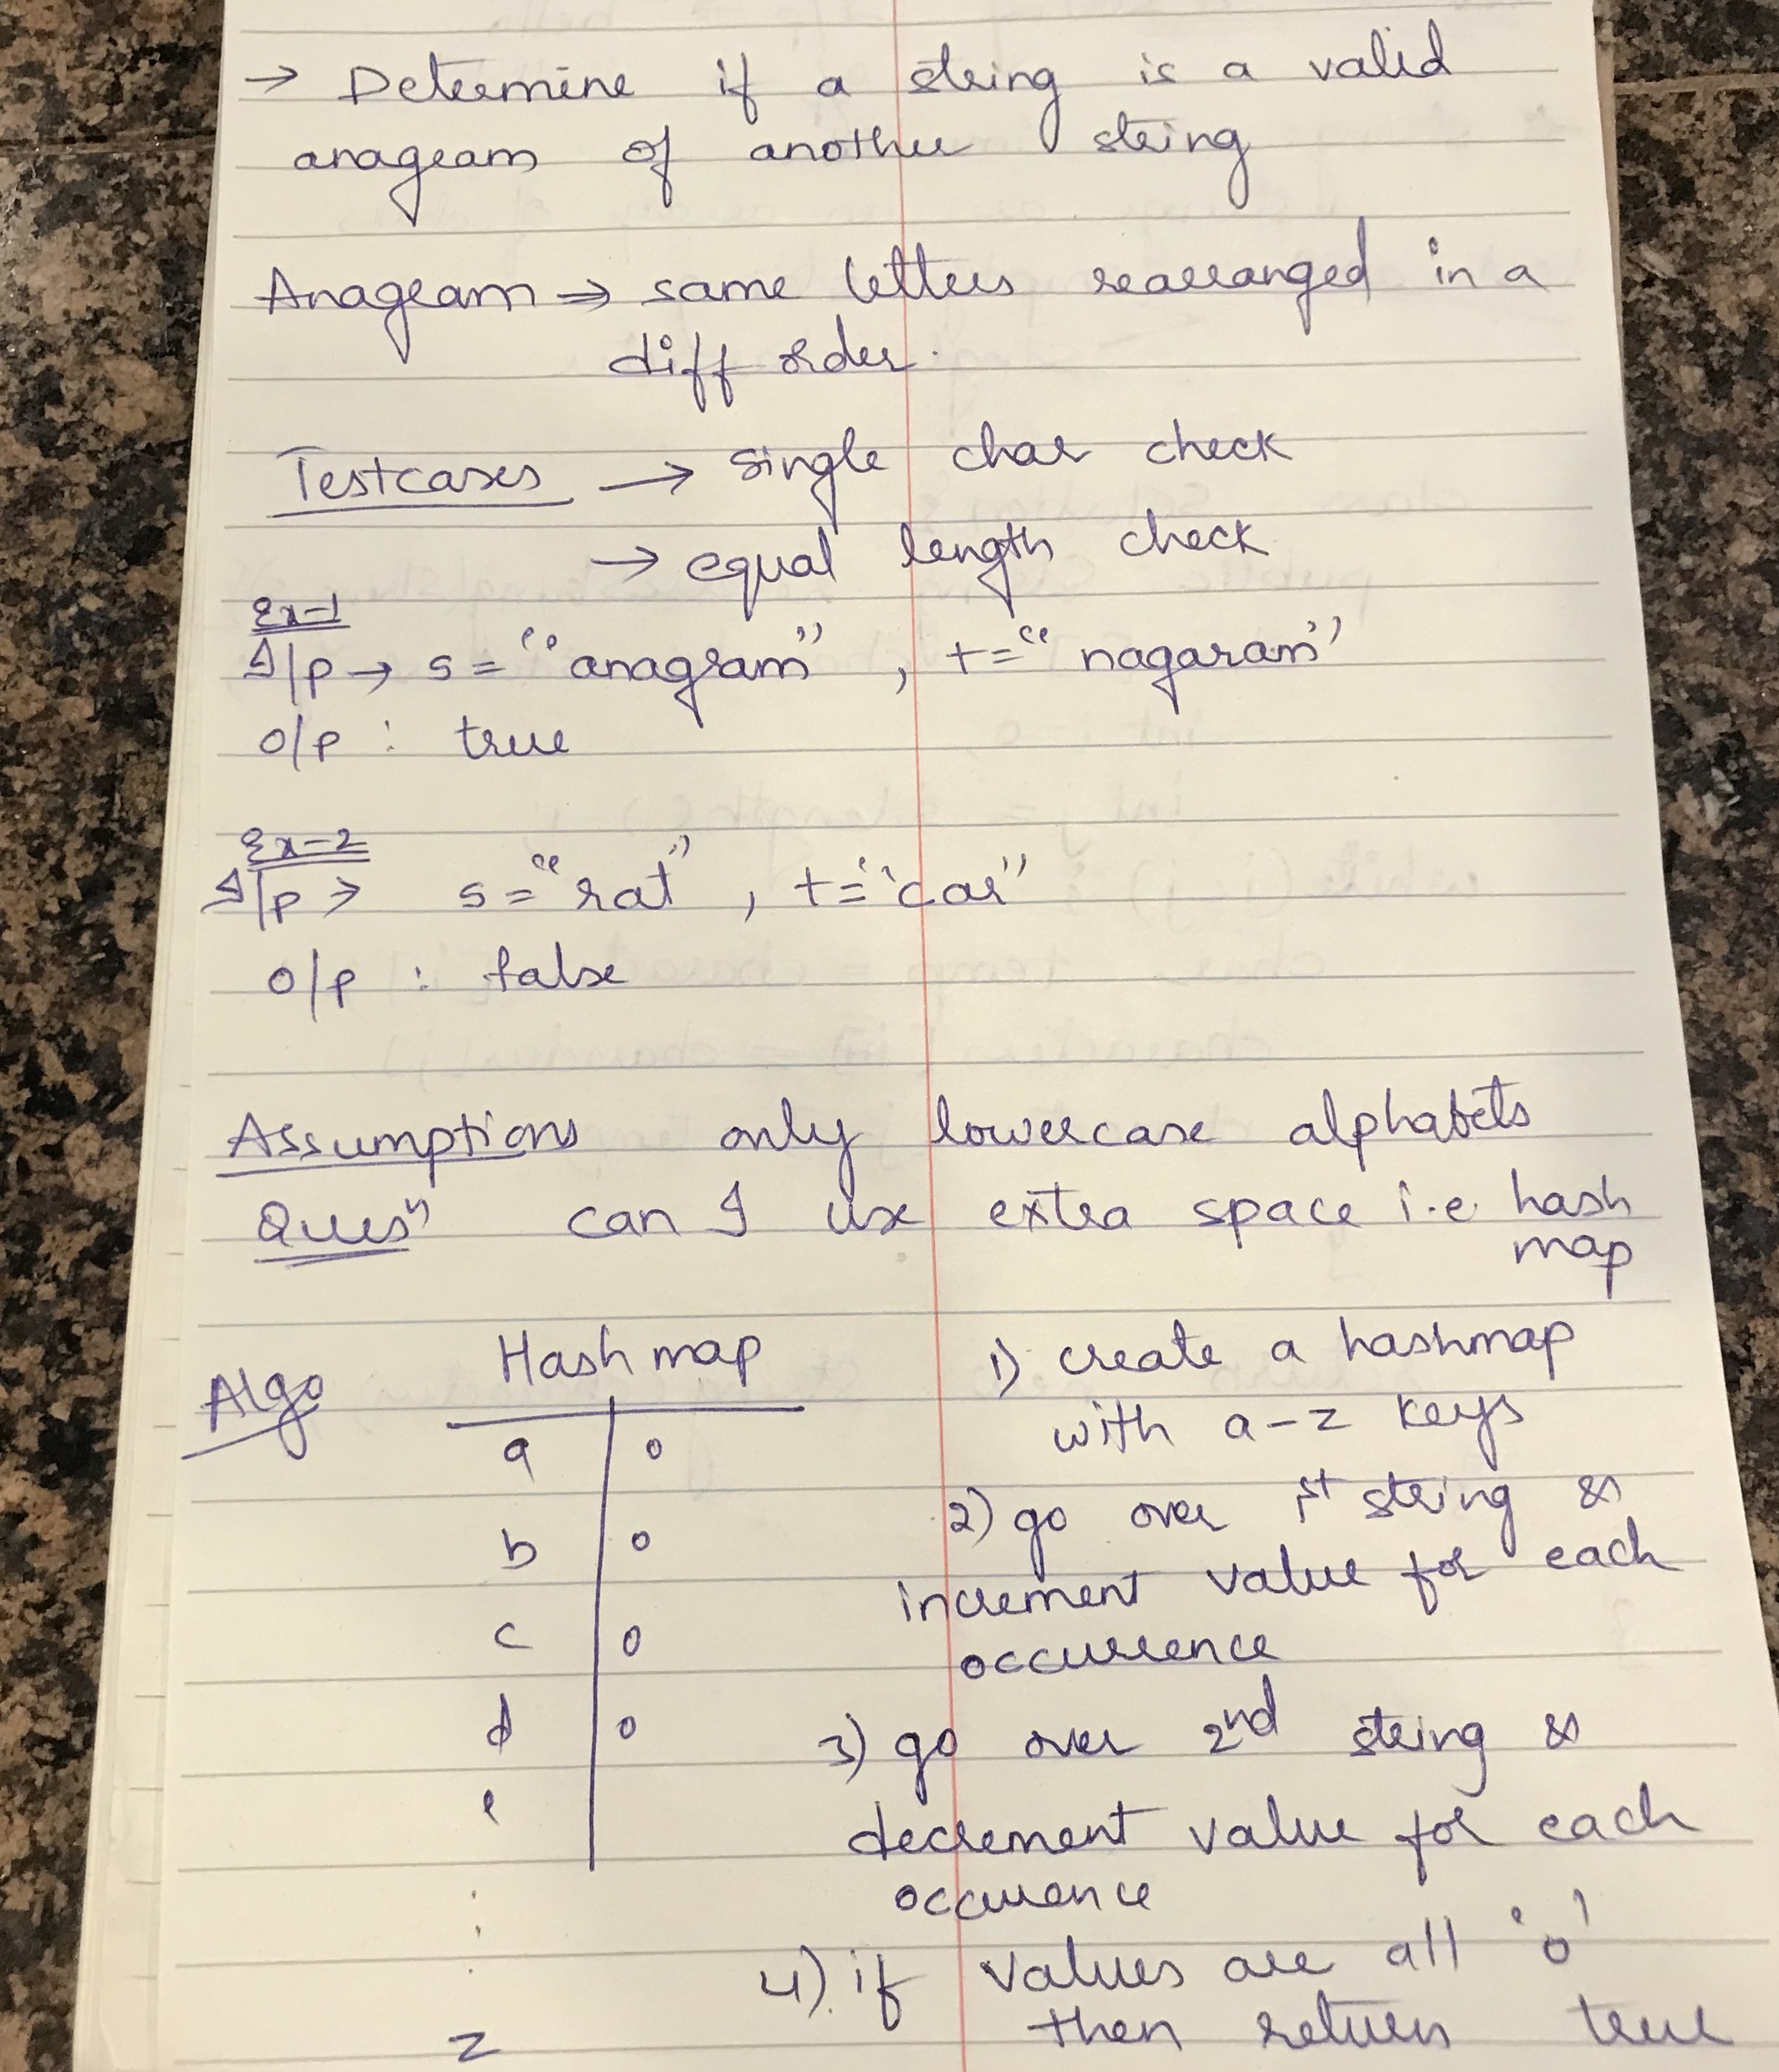 → Determine if a string is a valid
anagram of another string
Anagram ⇒ same letters rearranged in a
diff order.
Testcases → single char check
→ equal length check
Ex-1
I/p → s = "anagram" , t = "nagaram"
o/p : true
Ex-2
I/p → s = "rat" , t = "car"
o/p : false
Assumptions only lowercase alphabets
Quesⁿ can I use extra space i.e hash
map
Algo
Hash map
a | 0
b | 0
c | 0
d | 0
e
:
.
z
1) create a hashmap
with a-z keys
2) go over 1st string &
increment value for each
occurrence
3) go over 2nd string &
decrement value for each
occurence
4) if values are all '0'
then return true